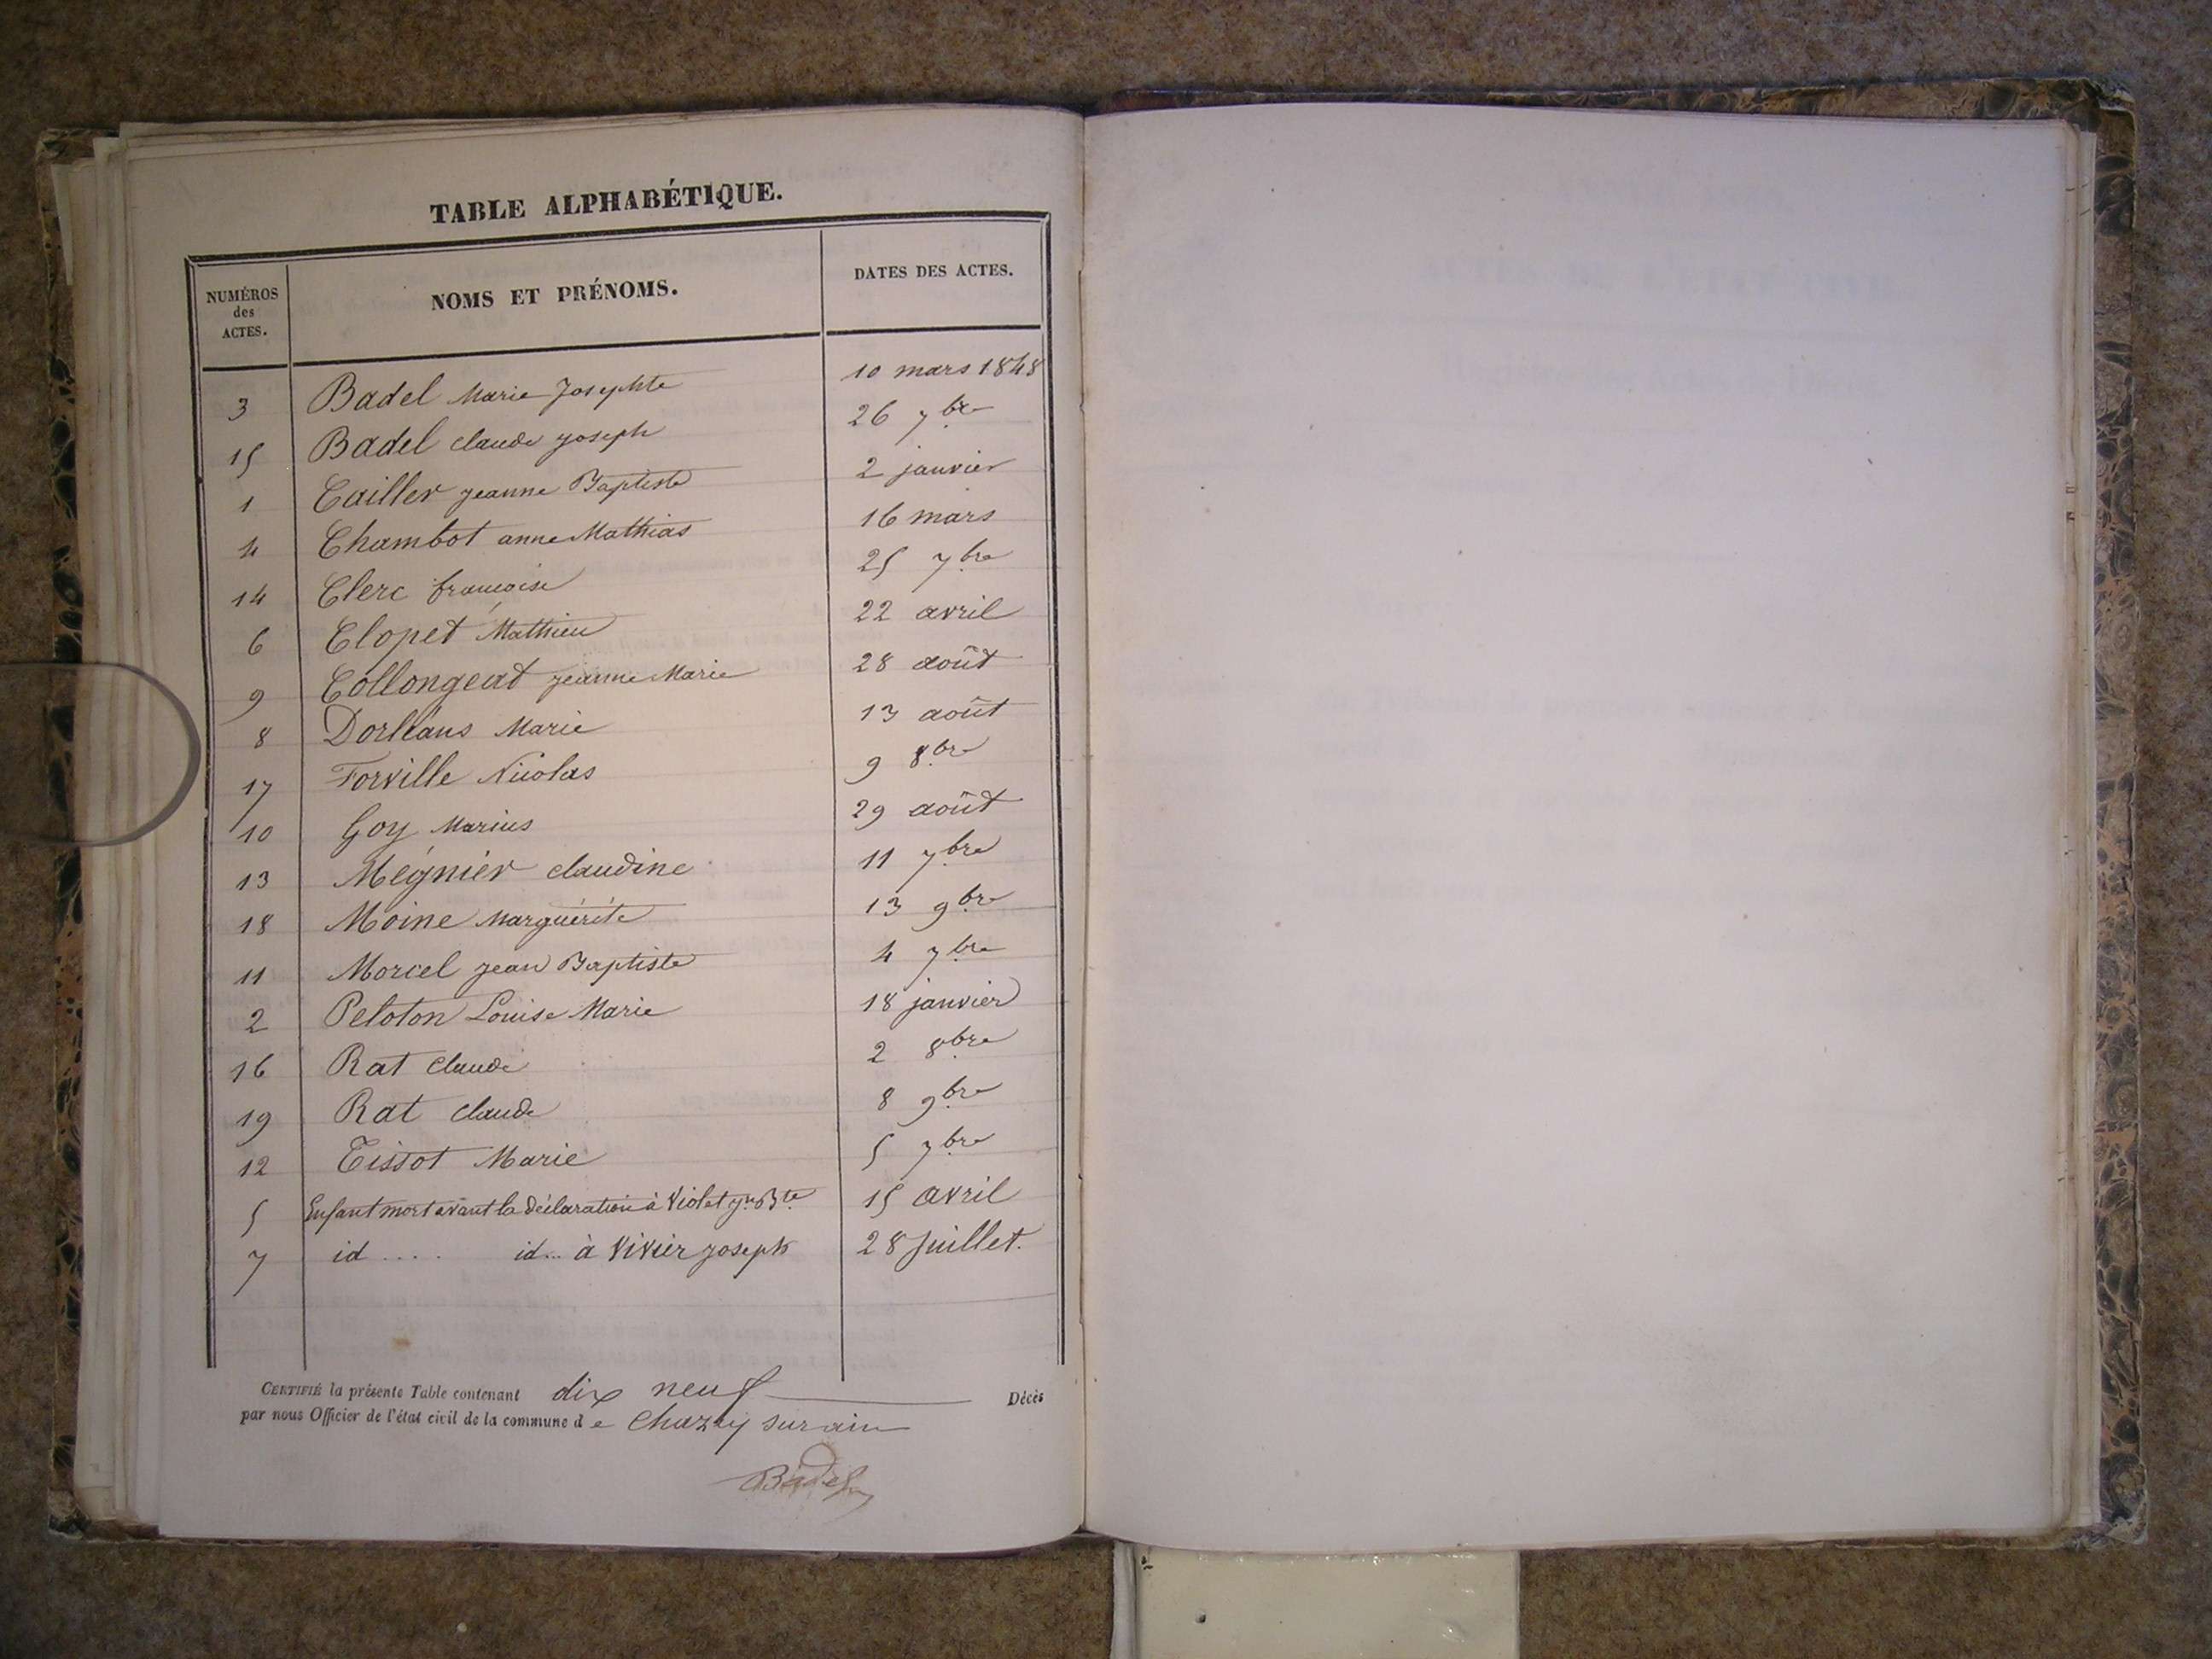 TABLE ALPHABÉTIQUE.
NUMÉROS des ACTES. NOMS ET PRÉNOMS. DATES DES ACTES.
3 Badel Marie Josephte 10 mars 1848
15 Badel claude joseph 26 7bre
1 Cailler jeanne Baptiste 2 janvier
4 Chambot anne Mathias 16 mars
14 Clerc françoise 25 7bre
6 Clopet Mathieu 22 avril
9 Collongeat jeanne Marie 28 août
8 Dorléans Marie 13 août
17 Forville Nicolas 9 8bre
10 Goy Marius 29 août
13 Mégnier claudine 11 7bre
18 Moine Marguérite 13 9bre
11 Morcel jean Baptiste 4 7bre
2 Peloton Louise Marie 18 janvier
16 Rat Claude 2 8bre
19 Rat claude 8 9bre
12 Tissot Marie 5 7bre
5 Enfant mort avant la déclaration à Violet jn Bte 15 avril
7 id .... id... à Vivier joseph 28 Juillet.
CERTIFIÉ la présente Table contenant dix neuf Décès
par nous Officier de l'état civil de la commune de Chazey sur ain
Badel